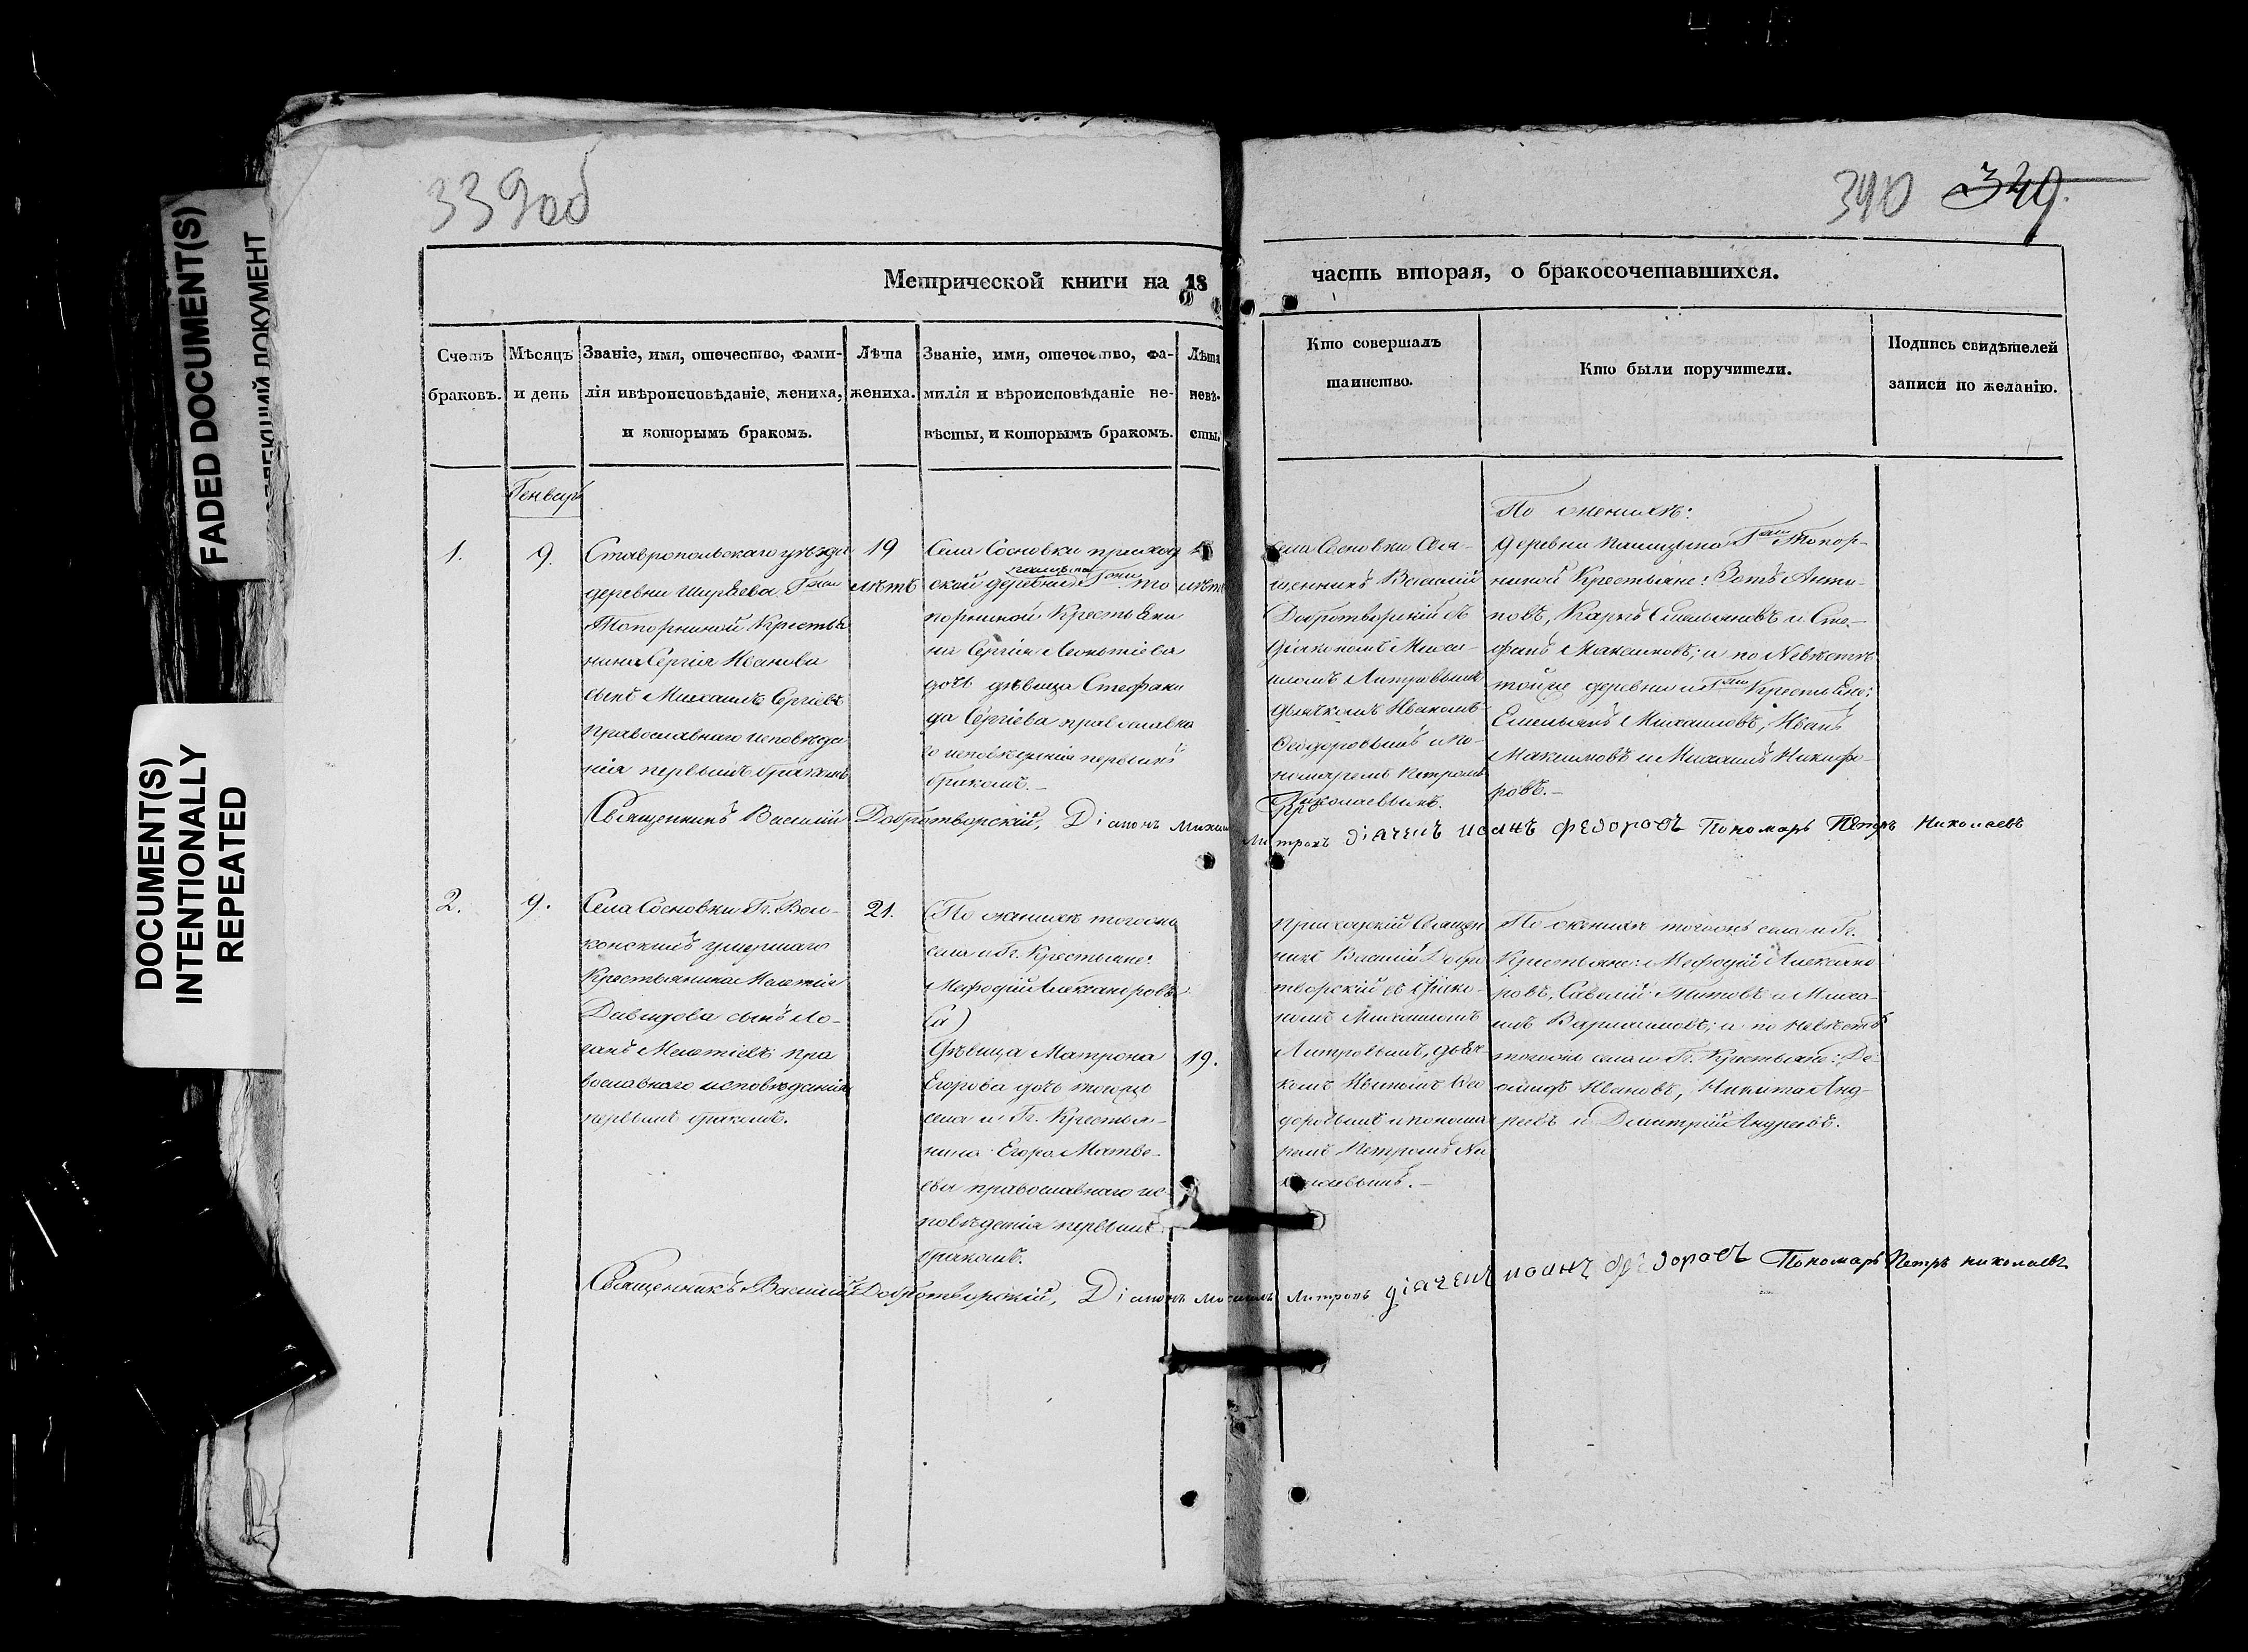 FADED DOCUMENT(S)
ДОКУМЕНТ
DOCUMENT(S)
INTENTIONALLY
REPEATED
339об
340 349.
Метрической книги на 18 часть вторая, о бракосочетавшихся.
Счетъ
браковъ.
Мѣсяцъ
и день
Званіе, имя, отечество, фами-
лія ивѣроисповѣданіе, жениха,
и которымъ бракомъ.
Лѣта
жениха.
Званіе, имя, отечество, фа-
милія и вѣроисповѣданіе не-
вѣсты, и которымъ бракомъ.
Лѣта
невѣ-
сты.
Кто совершалъ
таинство.
Кто были поручители.
Подпись свидѣтелей
записи по желанію.
Генварь
1.
9.
Ставропольскаго уѣзда
деревни Ширяева Гжи
Топорниной Крестья
нина Сергія Иванова
сынъ Михаилъ Сергіевъ
православнаго исповѣда
нія первымъ бракомъ
19
лѣтъ
Села Сосновки приход
ской деревни Гжи То
порниной Крестьяни
на Сергія Леонтіева
дочь дѣвица Стефани
да Сергіева православна
го исповѣданія первымъ
бракомъ.-
лѣтъ
села Сосновки Свя-
щенникъ Василій
Добротворскій съ
діакономъ Михаи-
ломъ Митровымъ
дьячкомъ Иваномъ
Ѳеодоровымъ и по-
номаремъ Петромъ
Николаевымъ.
По женихѣ:
деревни Гжи Топор-
ниной Крестьяне: Зотъ Анти-
повъ, Карпъ Емельяновъ и Сте-
фанъ Максимовъ; а по Невѣстѣ
тойже деревни и Гжи Крестьяне:
Емельянъ Михаиловъ, Иванъ
Максимовъ и Михаилъ Никифо-
ровъ.-
Священникъ Василий Добротворскій, Діаконъ Михаилъ Митровъ діячекъ иоанъ федоровъ Пономарь Петръ Николаевъ
2.
9.
Села Сосновки Гг. Вол-
конскихъ умершаго
Крестьянина Мелетія
Давидова сынъ Ло-
гинъ Мелетіевъ пра
вославнаго исповѣданія
первымъ бракомъ.
21.
(По женихѣ тогожъ
села и Гг. Крестьяне:
Мефодій Александровъ
(а)
Дѣвица Матрона
Егорова дочь тогожъ
села и Гг. Крестья-
нина Егора Матве-
ева православнаго ис-
повѣданія первымъ
бракомъ.
19.
приходскій Священ
никъ Василій Добро
творскій съ діяко-
номъ Михаиломъ
Митровымъ, дьяч
комъ Иваномъ Ѳео
доровымъ и понома
ремъ Петромъ Ни
колаевымъ.-
По женихѣ тогожъ села и Гг.
Крестьяне: Мефодій Александ
ровъ, Савелій Титовъ и Миха-
илъ Варламовъ; а по Невѣстѣ
тогожъ села и Гг. Крестьяне: Де-
Ивановъ, Никита Анд-
реевъ и Димитрій Андреевъ.
Священникъ Василий Добротворскій, Діаконъ Михаилъ Митровъ діячекъ иоанъ федоровъ Пономарь Петръ николаевъ